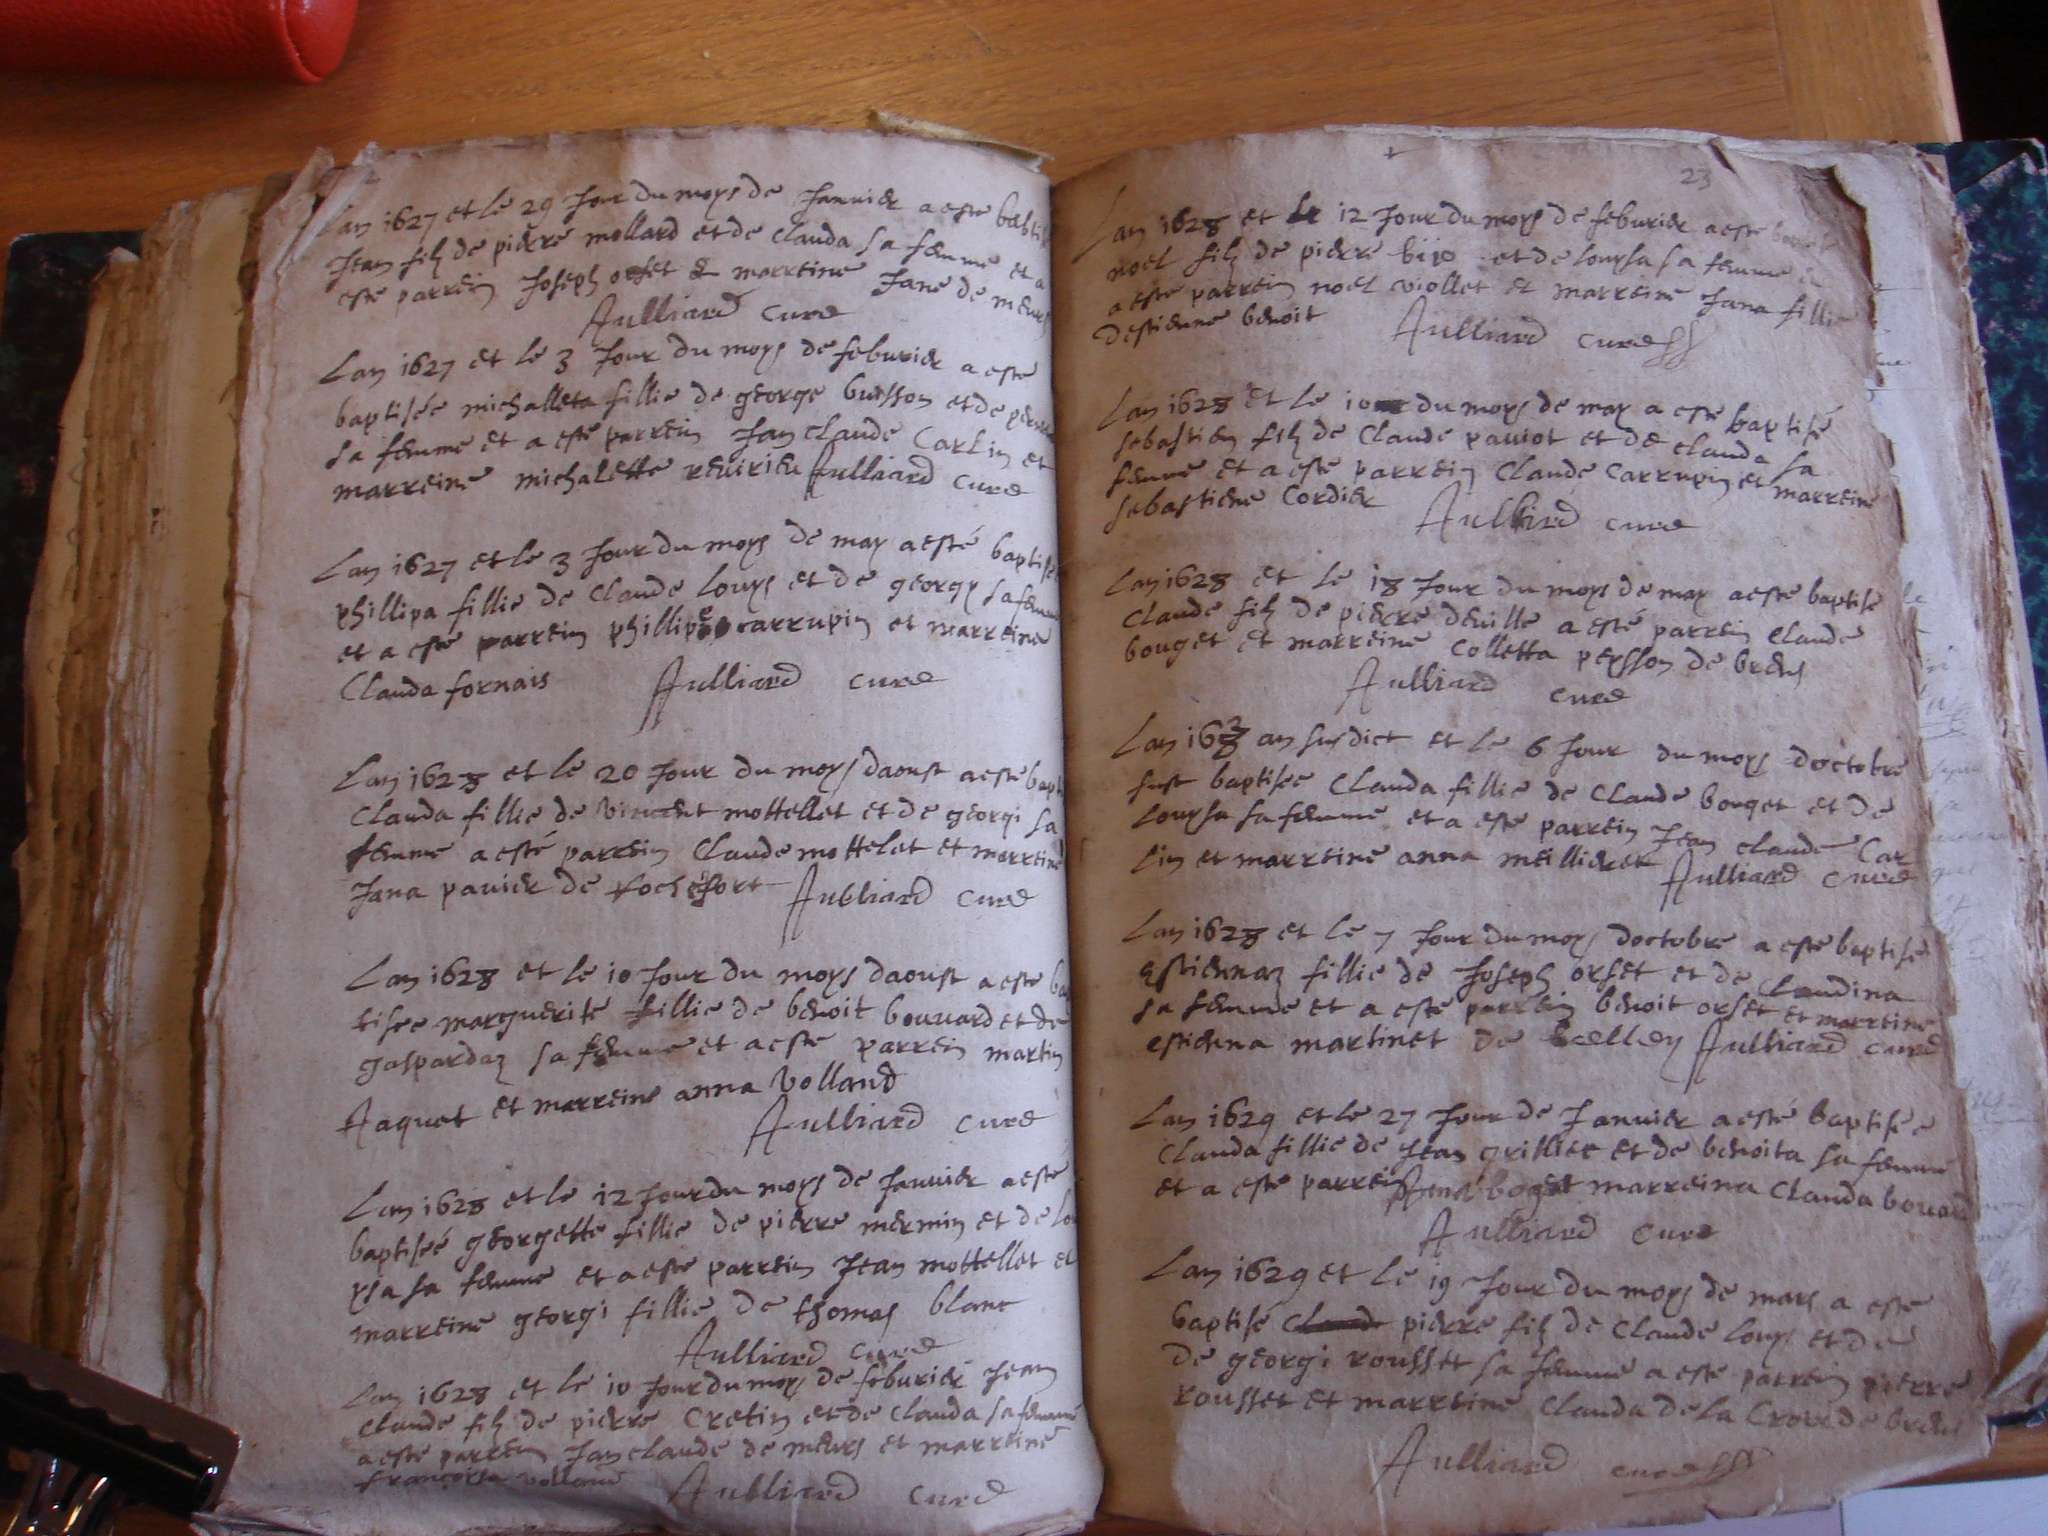 Lan 1627 et le 29 Jour du moys de Janvier a este
Jean filz de pierre mollard et de Clauda sa femme et a
este parrein Joseph orset & marreine Jane de meurs
Aulliard cure
Lan 1627 et le 3 Jour du moys de feburier a este
baptisée michalleta fillie de george buisson et de
sa femme et a este parrein Jan claude Carlin et
marreine michalette revirieu Aulliard cure
Lan 1627 et le 3 Jour du moys de may a esté baptise
phillipa fillie de Claude Louys et de georgy sa femme
et a este parrein phillipe carrupin et marreine
Clauda fornais Aulliard cure
Lan 1628 et le 20 Jour du moys daoust a este bapt
Clauda fillie de vincent mottellet et de georgi sa
femme a esté parrein Claude mottelet et marreine
Jana pavier de rochefort Aulliard cure
Lan 1628 et le 10 Jour du moys daoust a este bap
tisee marguerite fillie de benoit bouvard et de
gaspardaz sa femme et a este parrein martin
Jaquet et marreine anna volland
Aulliard cure
Lan 1628 et le 12 Jour du moys de Janvier a esté
baptiseé georgette fillie de pierre mermin et de lou
ysa sa femme et a este parrein Jean mottellet et
marreine georgi fillie de thomas blanc
Aulliard cure
Lan 1628 et le 10 Jour du moys de feburier Jean
Claude filz de pierre Cretin et de Clauda sa femme
a este parrein Jan claude de meurs et marreine
francoysa volland Aulliard cure
23
Lan 1628 et le 12 Jour du moys de feburier a este
noel filz de pierre et de louysa sa femme
a este parrein noel viollet et marreine Jana fillie
destienne benoit Aulliard cure
Lan 1628 et le 10 du moys de may a este baptisé
sebastien filz de Claude paviot et de clauda sa
femme et a este parrein Claude Carrupin et marreine
sebastiene Cordier
Aulliard cure
Lan 1628 et le 18 Jour du moys de may a este baptise
Claude filz de pierre deville a esté parrein Claude
bouget et marreine Colletta peysson de brens
Aulliard cure
Lan 1628 an susdict et le 6 Jour du moys doctobre
fust baptisee Clauda fillie de Claude bouget et de
louysa sa femme et a este parrein Jean claude Car
lin et marreine anna meillieret Aulliard cure
Lan 1628 et le 7 Jour du moys doctobre a este baptise
Estiennaz fillie de Joseph orset et de Claudina
sa femme et a este parrein benoit orset et marreine
estienna martinet de Aulliard cure
Lan 1629 et le 27 Jour de Janvier a esté baptisee
Clauda fillie de Jean grilliet et de benoita sa femme
et a este parrein marreina Clauda bouvard
Aulliard cure
Lan 1629 et le 19 Jour du moys de mars a este
baptisé pierre filz de Claude louys et de
de georgi rousset sa femme a este parrein pierre
rousset et marreine Clauda de la Croix de brens
Aulliard cure